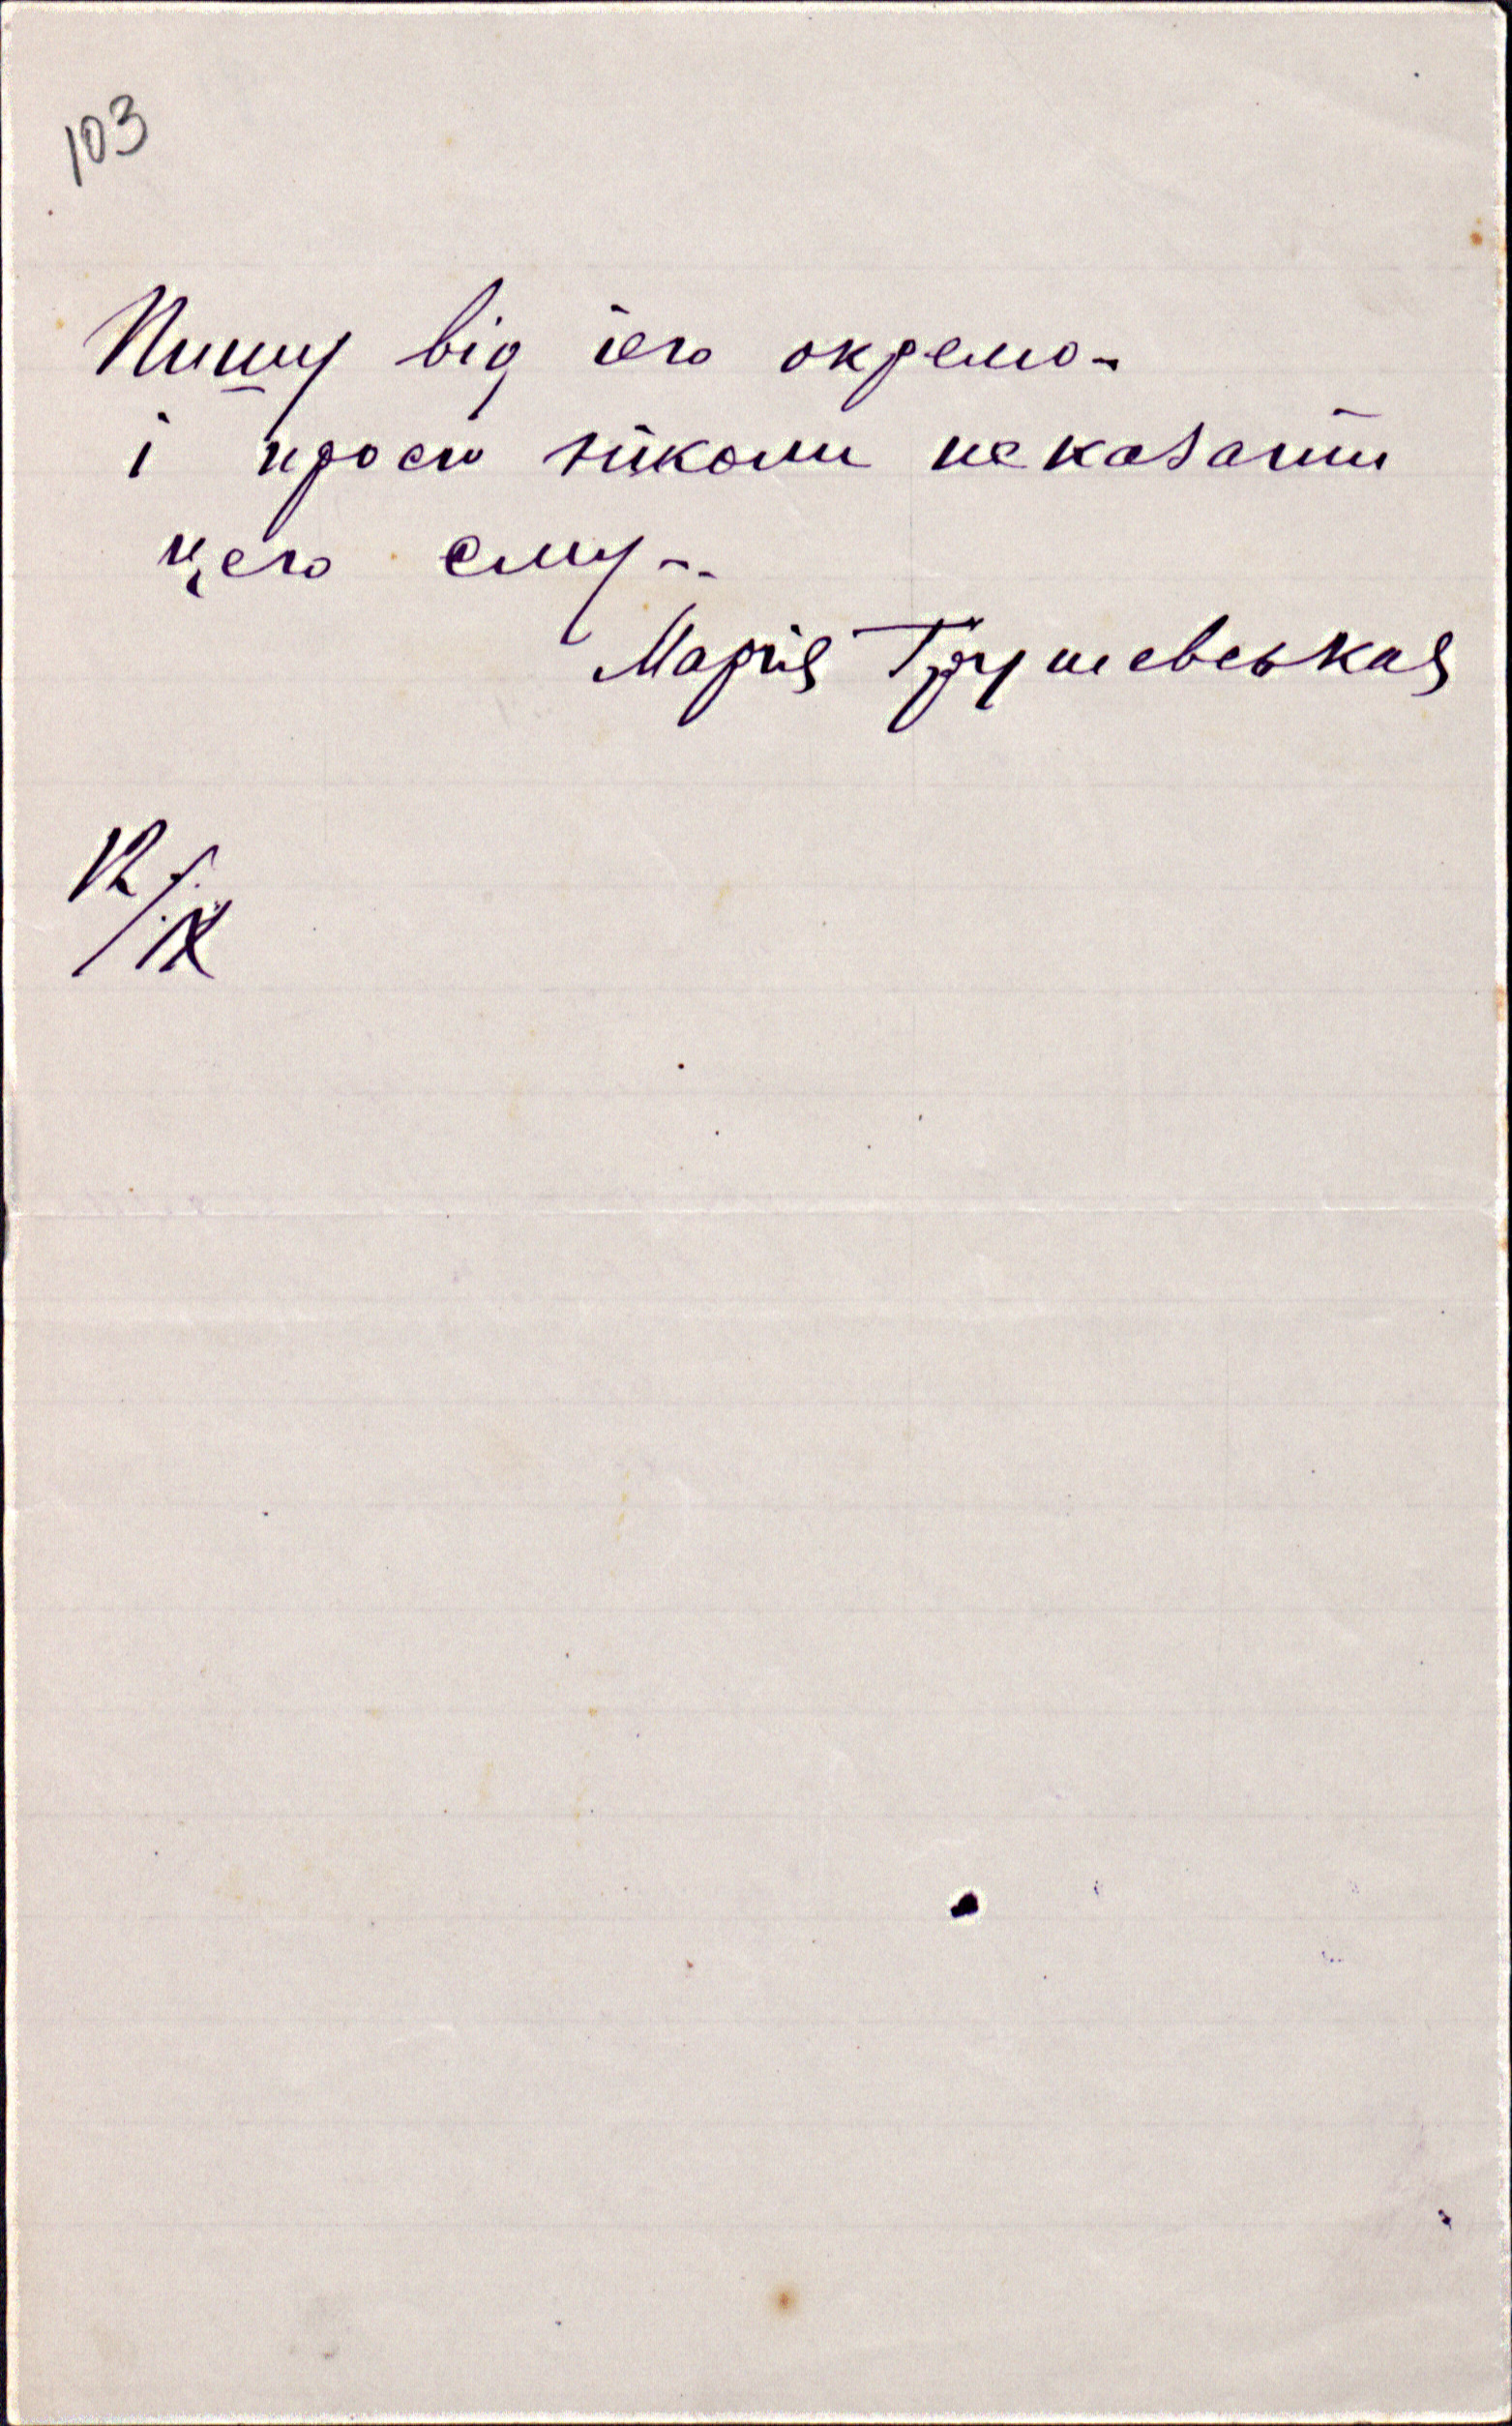 103
Пишу від іего окремо –
і просю ніколи не казати
цего ему –.
Марія Грушевськая
12/IX